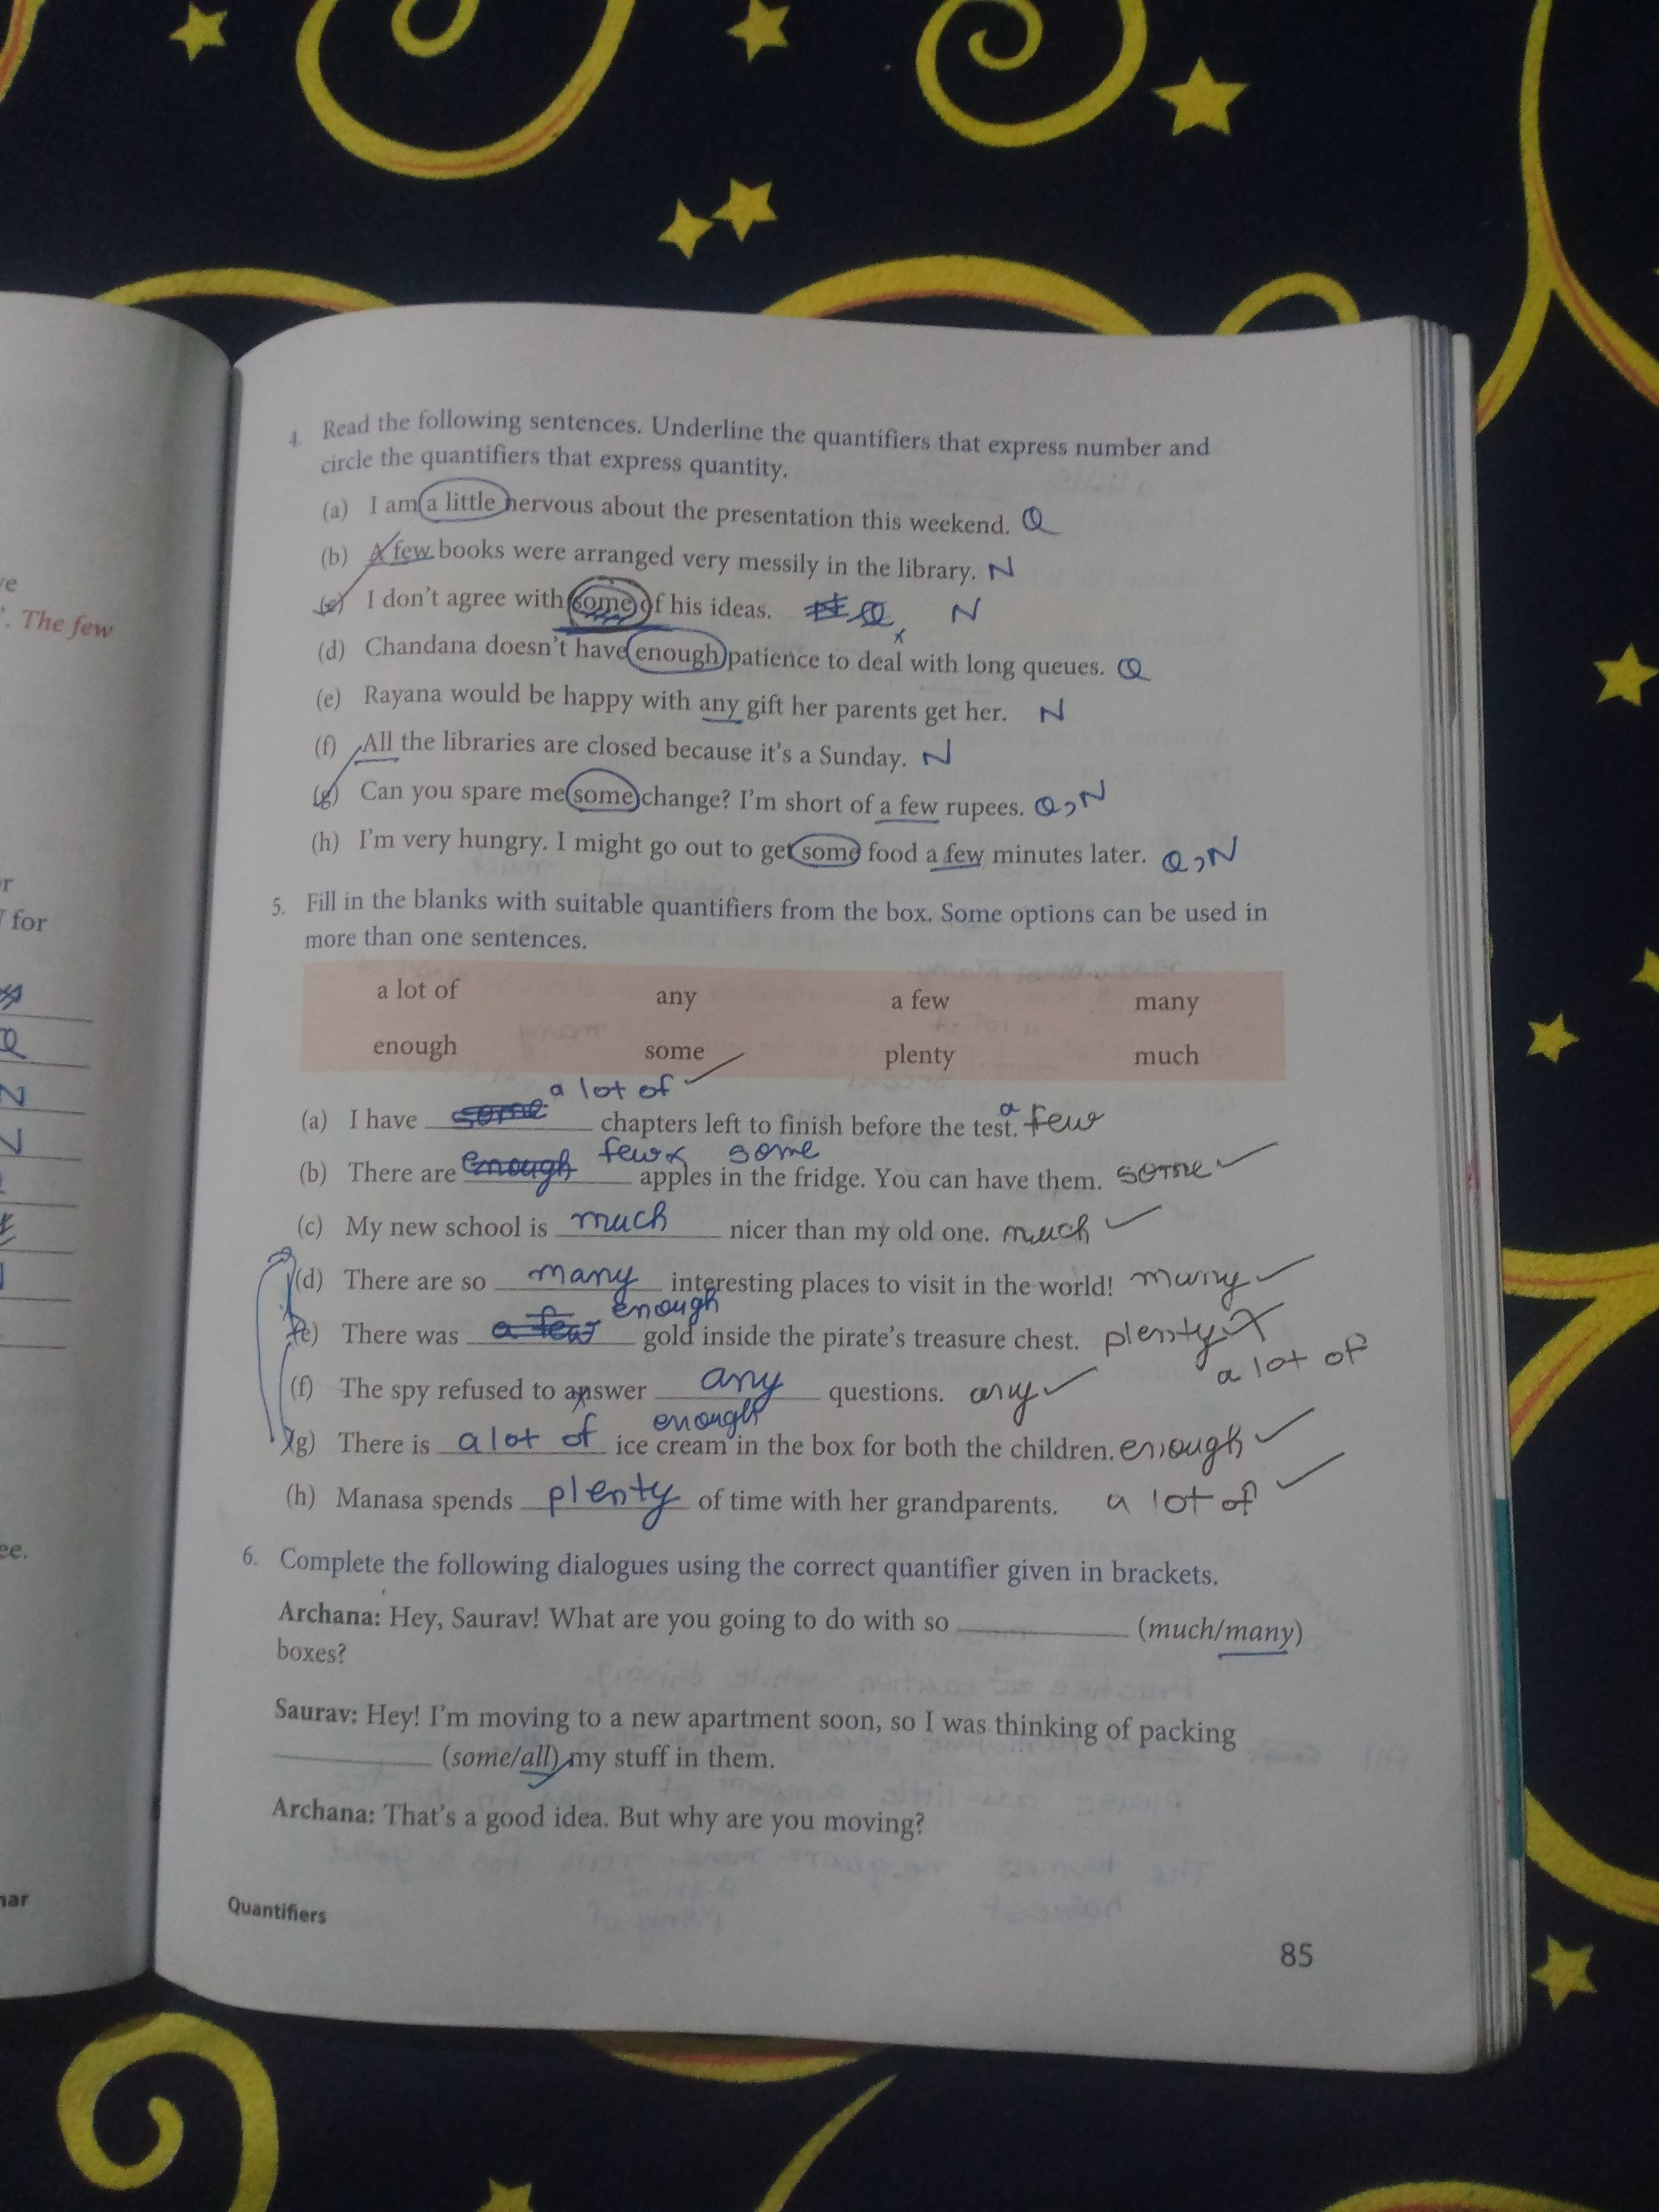 ve
'. The few
r
for
ee.
nar
4. Read the following sentences. Underline the quantifiers that express number and
circle the quantifiers that express quantity.
(a) I am a little nervous about the presentation this weekend. Q
(b) A few books were arranged very messily in the library. N
(c) I don't agree with some of his ideas. N
(d) Chandana doesn't have enough patience to deal with long queues. Q
(e) Rayana would be happy with any gift her parents get her. N
(f) All the libraries are closed because it's a Sunday. N
(g) Can you spare me some change? I'm short of a few rupees. Q, N
(h) I'm very hungry. I might go out to get some food a few minutes later. Q, N
5. Fill in the blanks with suitable quantifiers from the box. Some options can be used in
more than one sentences.
a lot of any a few many
enough some plenty much
a lot of
(a) I have some chapters left to finish before the test. a few
few some
(b) There are enough apples in the fridge. You can have them. some
(c) My new school is much nicer than my old one. much
(d) There are so many interesting places to visit in the world! many
enough
(e) There was a few gold inside the pirate's treasure chest. plenty
a lot of
(f) The spy refused to answer any questions. any
enough
(g) There is a lot of ice cream in the box for both the children. enough
(h) Manasa spends plenty of time with her grandparents. a lot of
6. Complete the following dialogues using the correct quantifier given in brackets.
Archana: Hey, Saurav! What are you going to do with so ____________ (much/many)
boxes?
Saurav: Hey! I'm moving to a new apartment soon, so I was thinking of packing
____________ (some/all) my stuff in them.
Archana: That's a good idea. But why are you moving?
Quantifiers
85